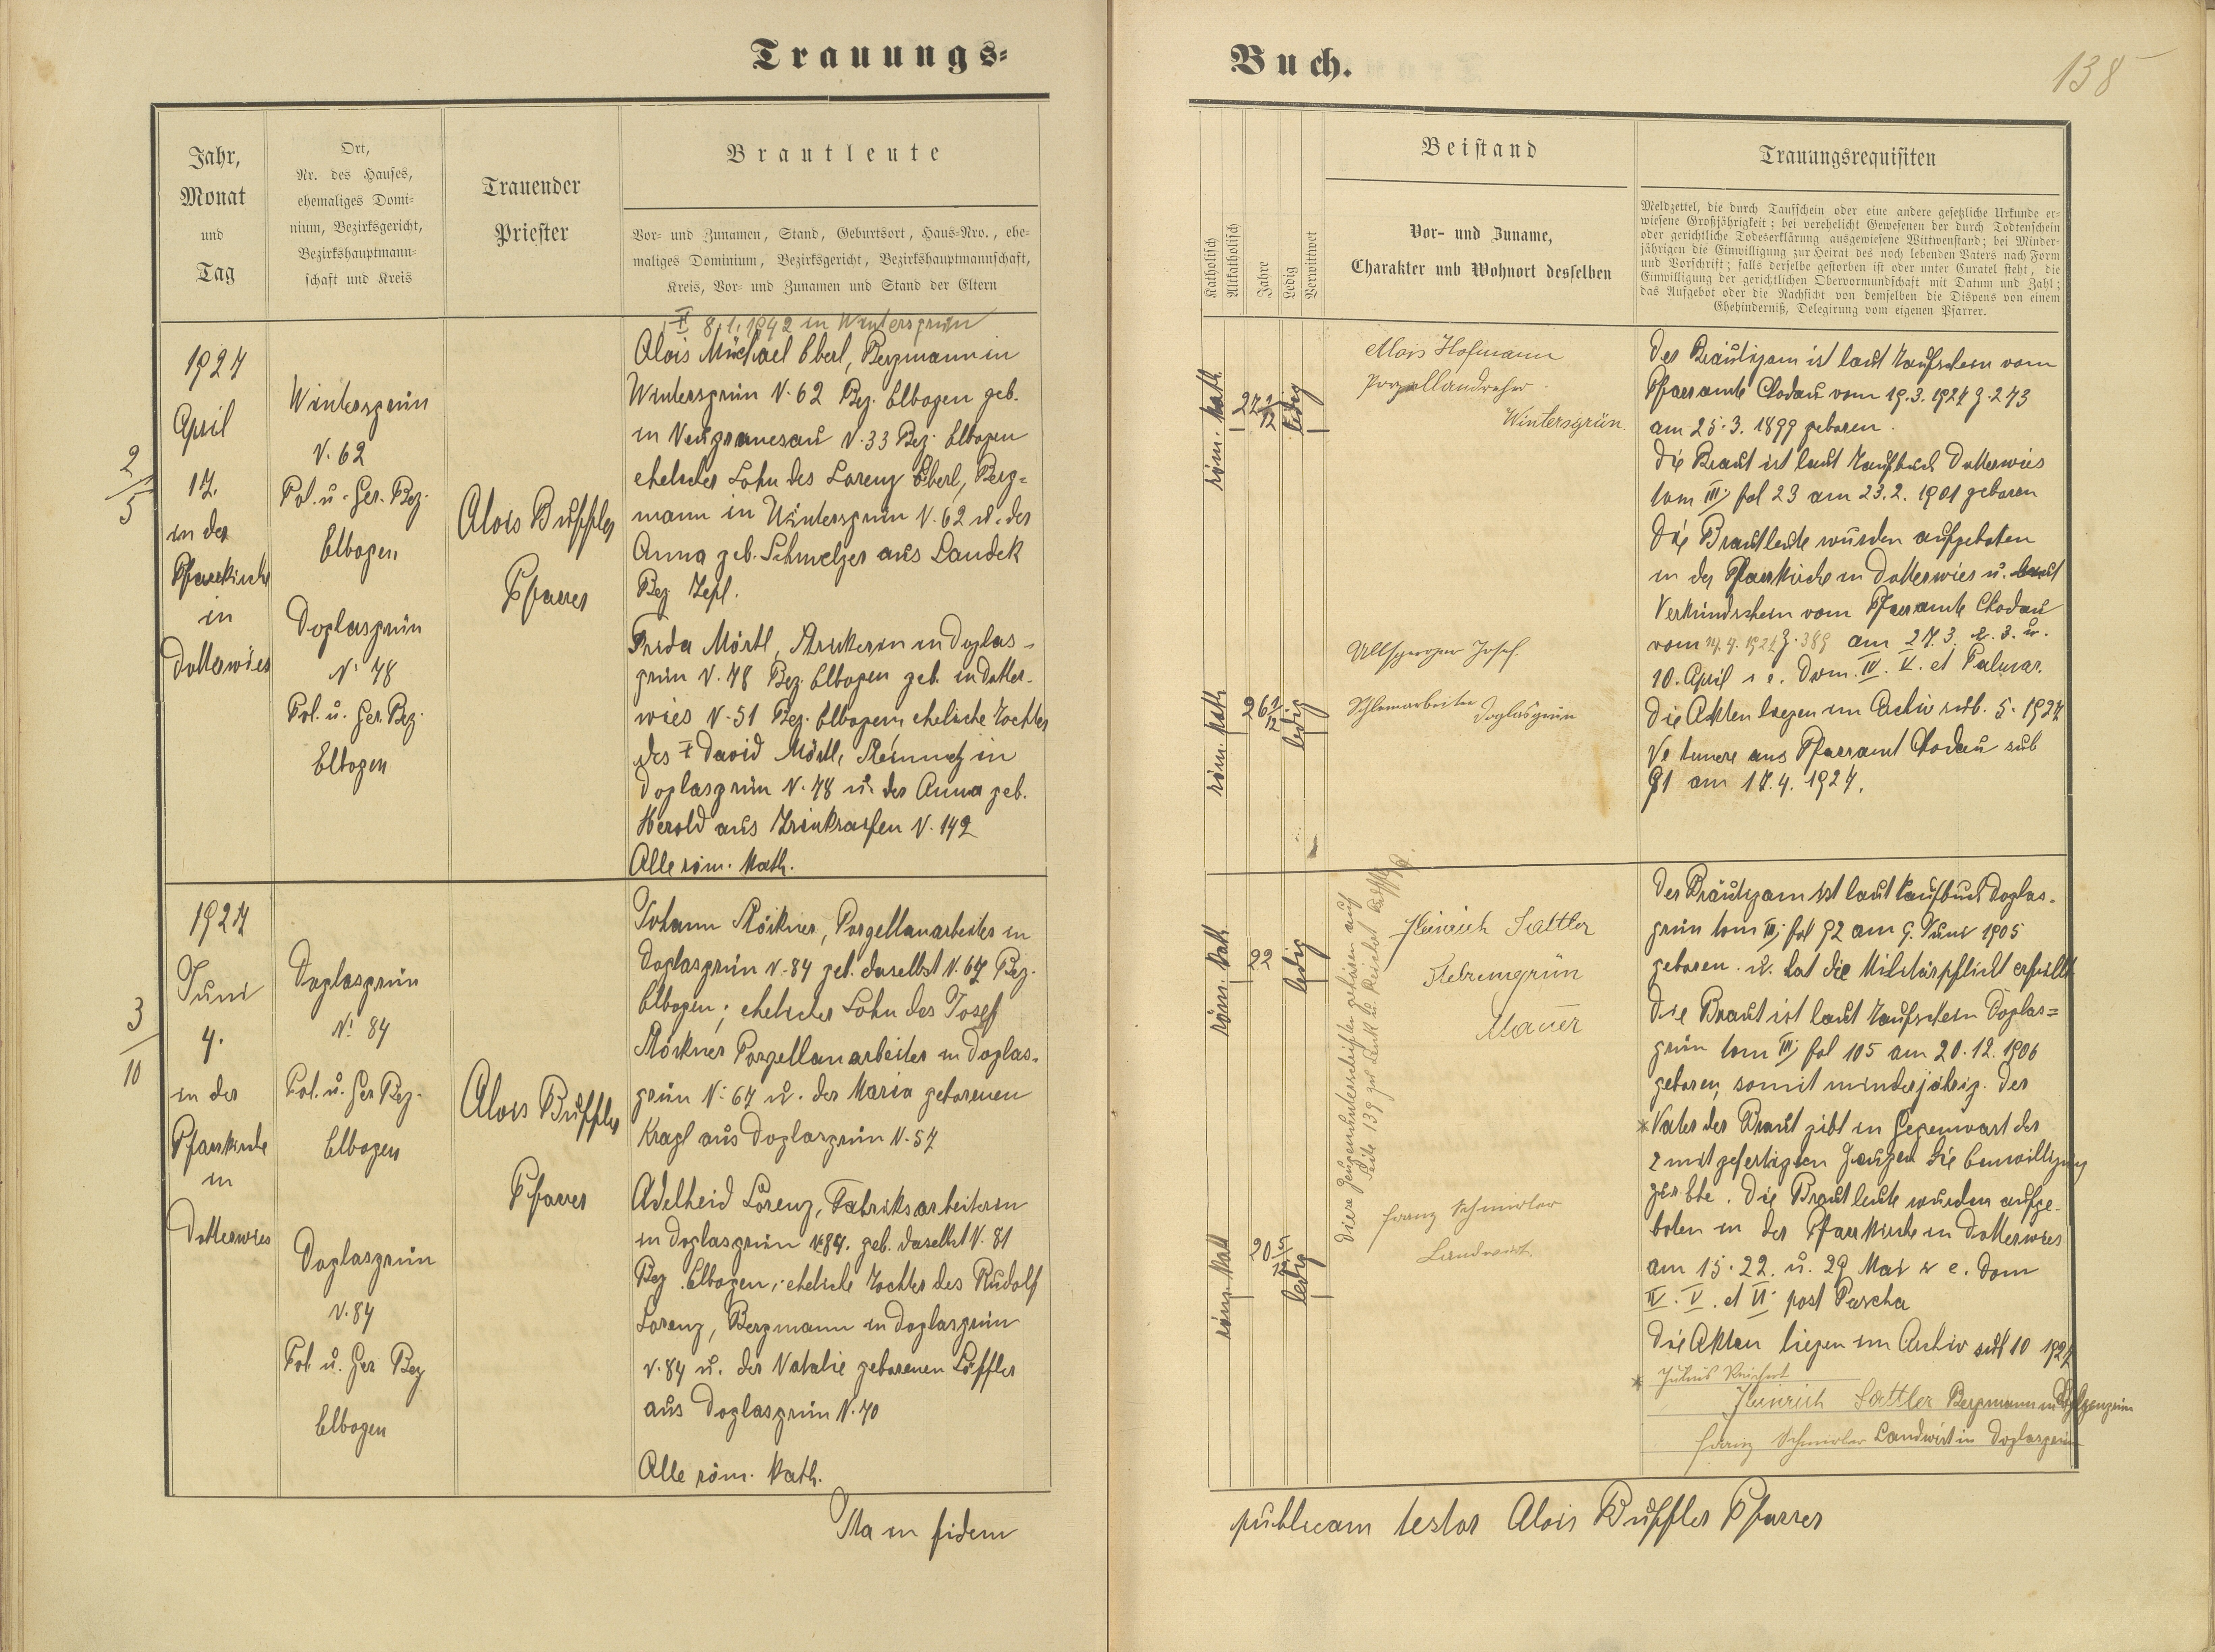 Trauungs=
Jahr,
Monat
und
Tag
Ort,
Nr. des Hauses,
ehemaliges Domi-
nium, Bezirksgericht,
Bezirkshauptmann-
schaft und Kreis
Trauender
Priester
Brautleute
Vor- und Zunamen, Stand, Geburtsort, Haus-Nro., ehe-
maliges Dominium, Bezirksgericht, Bezirkshauptmannschaft,
Kreis, Vor- und Zunamen und Stand der Eltern
2/5
1927
April
17.
in der
Pfarrkirche
in
Dotterwies
Wintersgrün
N. 62
Pol. u. Ger. Bez.
Elbogen
Doglasgrün
N. 78
Pol. u. Ger. Bez.
Elbogen
Alois Buffler
Pfarrer
8.1.1942 in Wintersgrün
Alois Michael Eberl, Bergmann in
Wintersgrün N. 62 Bez. Elbogen geb.
in N. 33 Bez. Elbogen
ehelicher Sohn des Lorenz Eberl, Berg=
mann in Wintersgrün N. 62 u. der
Anna geb. Schmelzer aus Landek
Bez. Tepl.
Frida Mörtl, Strickerin in Doglas-
grün N. 78 Bez. Elbogen geb. in Dotter-
wies N. 51 Bez. Elbogen, eheliche Tochter
des † David Mörtl, in
Doglasgrün N. 78 u. der Anna geb.
Herold aus Trinkseifen N. 142
Alle röm. kath.
3/10
1927
Juni
4.
in der
Pfarrkirche
in
Dotterwies
Doglasgrün
N. 84
Pol. u. Ger. Bez.
Elbogen
Doglasgrün
N. 84
Pol. u. Ger. Bez
Elbogen
Alois Buffler
Pfarrer
Johann Stöckner, Porzellanarbeiter in
Doglasgrün N. 84 geb. daselbst N. 67 Bez.
Elbogen; ehelicher Sohn des Josef
Stöckner Porzellanarbeiter in Doglas-
grün N. 67 u. der Maria geborenen
Kragl aus Doglasgrün N. 57
Adelheid Lorenz, Fabriksarbeiterin
in Doglasgrün N. 84. geb. daselbst N. 81
Bez. Elbogen; eheliche Tochter des Rudolf
Lorenz, Bergmann in Doglasgrün
N. 84 u. der Natalie geborenen Löffler
aus Doglasgrün N. 70
Alle röm. kath.
Ita in fidem
Buch.
138
Katholisch
Altkatholisch
Jahre
Ledig
Verwittwet
Beistand
Vor- und Zuname,
Charakter und Wohnort desselben
Trauungsrequisiten
Meldzettel, die durch Taufschein oder eine andere gesetzliche Urkunde er-
wiesene Großjährigkeit; bei verehelicht Gewesenen der durch Todtenschein
oder gerichtliche Todeserklärung ausgewiesene Wittwenstand; bei Minder-
jährigen die Einwilligung zur Heirat des noch lebenden Vaters nach Form
und Vorschrift; falls derselbe gestorben ist oder unter Curatel steht, die
Einwilligung der gerichtlichen Obervormundschaft mit Datum und Zahl;
das Aufgebot oder die Nachsicht von demselben die Dispens von einem
Ehehinderniß, Delegirung vom eigenen Pfarrer.
röm. kath.
ledig
Alois Hofmann
Porzellandreher
Wintersgrün.
röm. kath
26
ledig
Josef
Doglasgrün
Der Bräutigam ist laut Taufschein vom
Pfarramte Chodau vom 19.3.1927 Z. 273
am 25.3.1899 geboren.
Die Braut ist laut Taufbuch Dotterwies
tom III, fol 23 am 23.2.1901 geboren
Die Brautleute wurden aufgeboten
in der Pfarrkirche in Dotterwies u. laut
Verkündschein vom Pfarramte Chodau
vom Z. 389 am 27.3. u.
10. April i. e. Dom. IV. V. et Palmar.
Die Akten liegen im Archiv sub. 5. 1927
Pfarramt Chodau sub
91 am 17.4.1927.
röm. kath
22
ledig
Diese Zeugenunterschriften gehören auf
Seite 139 zu u. Reichert
Heinrich Sattler
Stelzengrün
Mauer
röm. kath
20 5/12
ledig
Franz Schmirler
Landwirt
Der Bräutigam ist laut Taufbuch Doglas-
grün tom III, fol 92 am 9. Juni 1905
geboren u. hat die Militärpflicht erfüllt
Die Braut ist laut Taufschein Doglas=
grün tom III, fol 105 am 20.12.1906
geboren, somit minderjährig. Der
* Vater der Braut gibt in Gegenwart der
2 mitgefertigten Zeugen die Einwilligung
zur Ehe. Die Brautleute wurden aufge-
boten in der Pfarrkirche in Dotterwies
am 15. 22. u. 29 Mai i. e. Dom
IV. V. et VI post Pascha
Die Akten liegen im Archiv sub 10 1927
* Julius Reichert
Heinrich Sattler Bergmann in Stelzengrün
Franz Schmirler Landwirt in Doglasgrün
publicam testor Alois Buffler Pfarrer